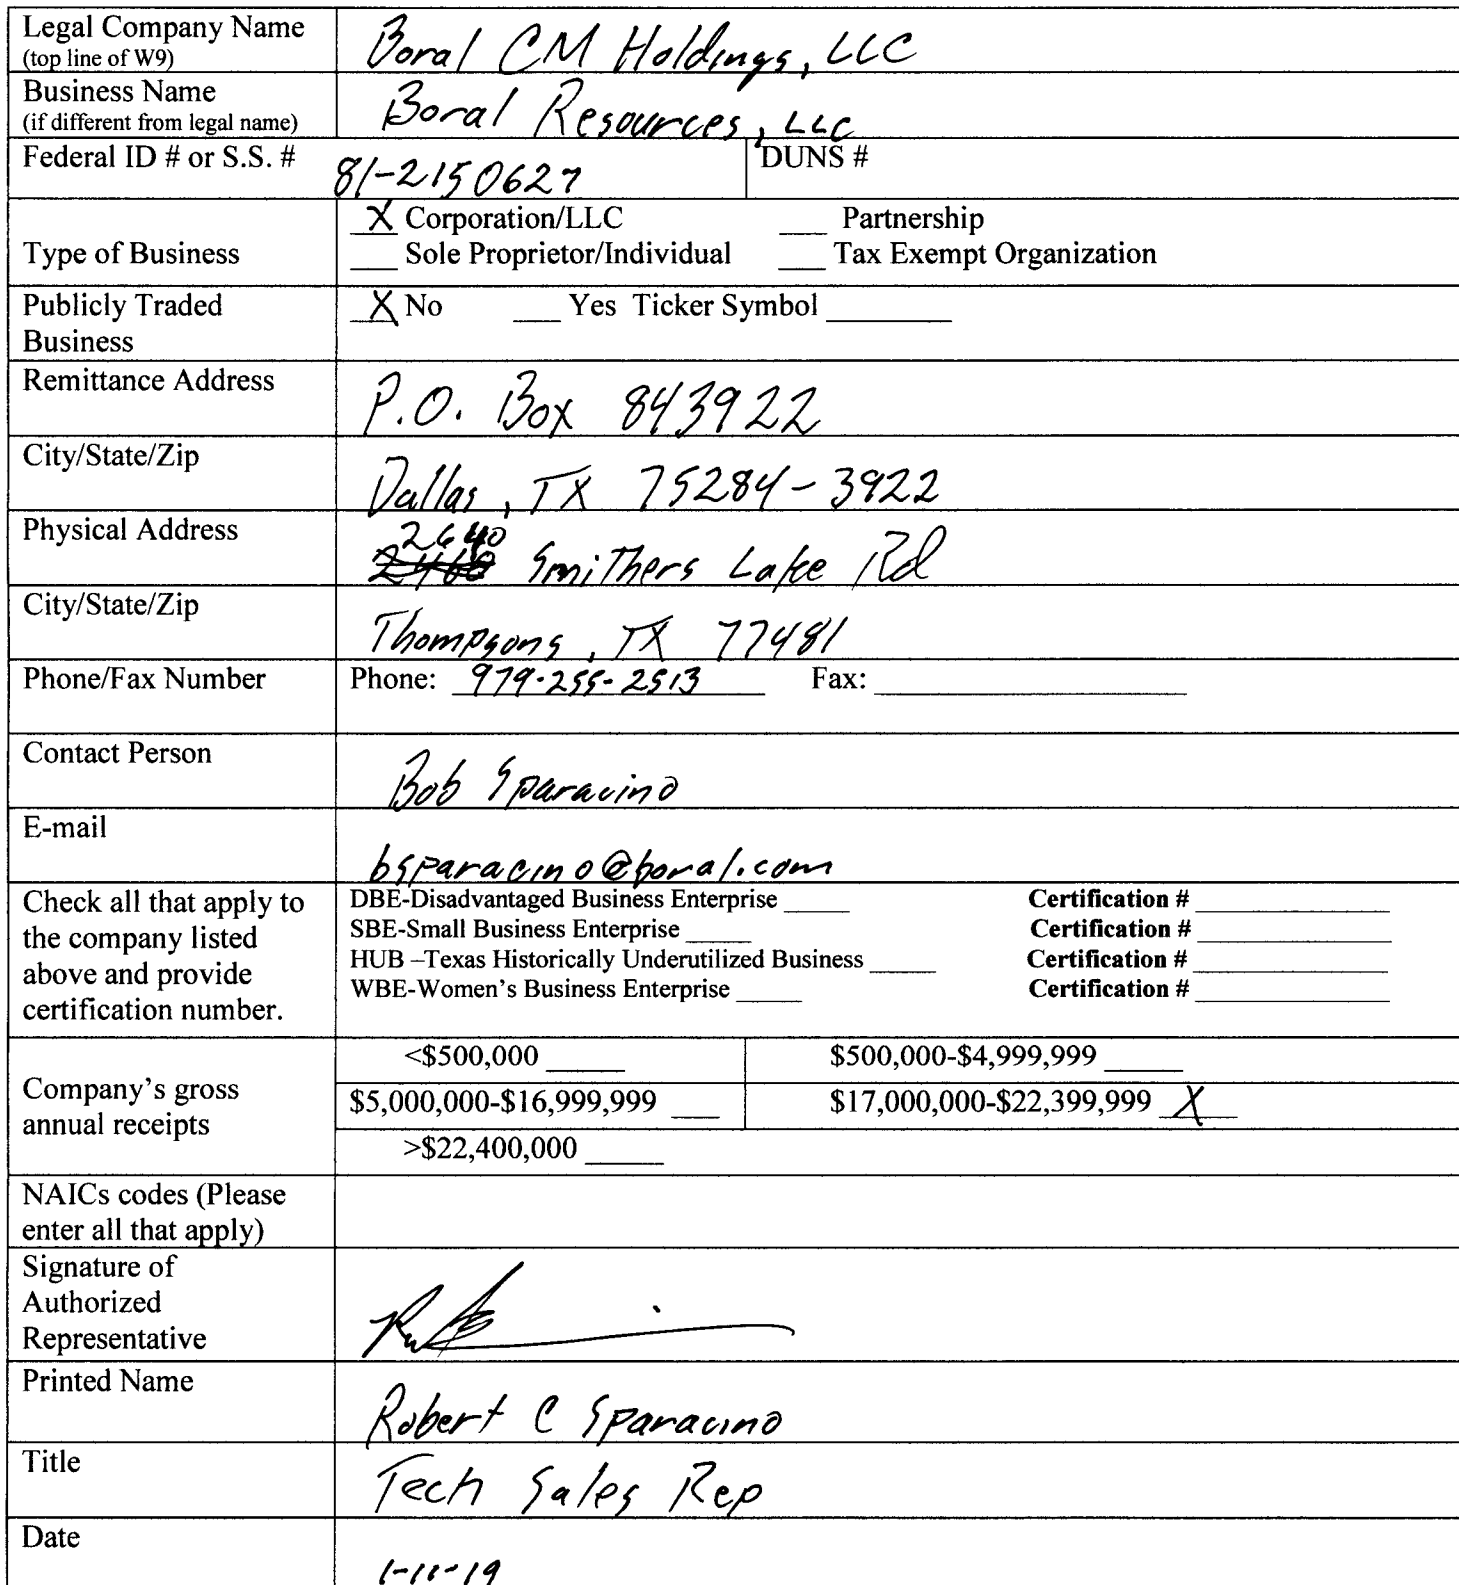 Legal Company Name
(top line of W9)
Boral CM Holdings, LLC
Business Name
(if different from legal name)
Boral Resources, LLC
Federal ID # or S.S. #
81-2150627
DUNS #
Type of Business
X Corporation/LLC ___ Partnership
___ Sole Proprietor/Individual ___ Tax Exempt Organization
Publicly Traded
Business
X No ___ Yes Ticker Symbol ________
Remittance Address
P.O. Box 843922
City/State/Zip
Dallas, TX 75284-3922
Physical Address
2640
2460 Smithers Lake Rd
City/State/Zip
Thompsons, TX 77481
Phone/Fax Number
Phone: 979-255-2513 Fax: ____________________
Contact Person
Bob Sparacino
E-mail
bsparacino@boral.com
Check all that apply to
the company listed
above and provide
certification number.
DBE-Disadvantaged Business Enterprise _____ Certification # ______________
SBE-Small Business Enterprise _____ Certification # ______________
HUB –Texas Historically Underutilized Business _____ Certification # ______________
WBE-Women's Business Enterprise _____ Certification # ______________
Company's gross
annual receipts
<$500,000 _____ $500,000-$4,999,999 _____
$5,000,000-$16,999,999 ___ $17,000,000-$22,399,999 X
>$22,400,000 _____
NAICs codes (Please
enter all that apply)
Signature of
Authorized
Representative
Printed Name
Robert C Sparacino
Title
Tech Sales Rep
Date
1-11-19